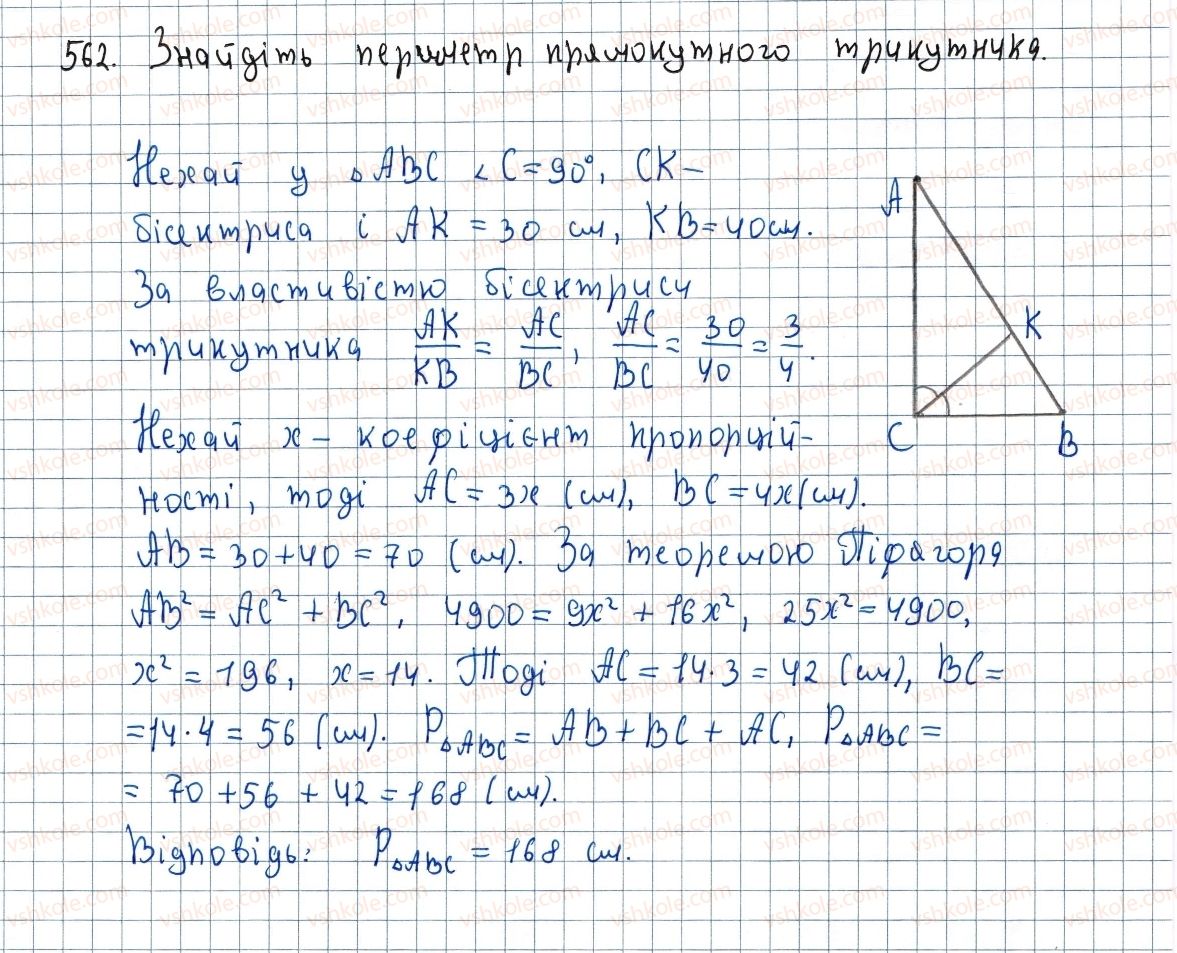 562. Знайдіть периметр прямокутного трикутника.
Нехай у △ABC ∠C = 90°, CK –
бісектриса і AK = 30 см, KB = 40 см.
За властивістю бісектриси
трикутника AK/KB = AC/BC, AC/BC = 30/40 = 3/4.
Нехай x – коефіцієнт пропорцій-
ності, тоді AC = 3x (см), BC = 4x (см).
AB = 30 + 40 = 70 (см). За теоремою Піфагора
AB² = AC² + BC², 4900 = 9x² + 16x², 25x² = 4900,
x² = 196, x = 14. Тоді AC = 14·3 = 42 (см), BC =
= 14·4 = 56 (см). P△ABC = AB + BC + AC, P△ABC =
= 70 + 56 + 42 = 168 (см).
Відповідь: P△ABC = 168 см.
A
K
C
B
vshkole.com